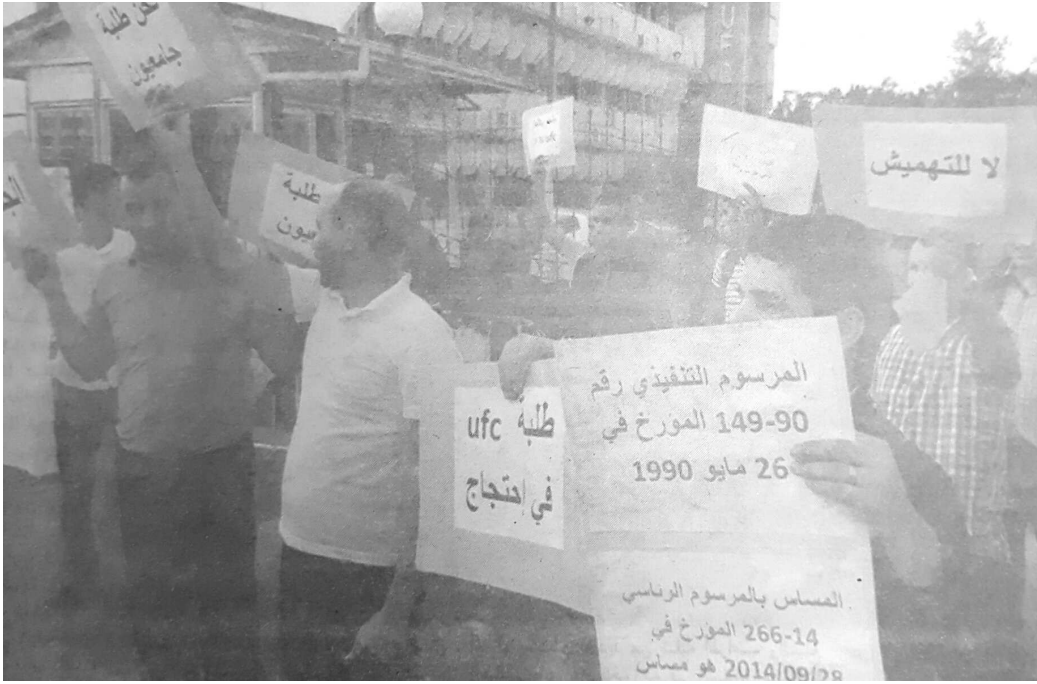 نحن طلبة
جامعيون
طلبة
لا للتهميش
طلبة ufc
في إحتجاج
المرسوم التنفيذي رقم
90-149 المؤرخ في
26 مايو 1990
المساس بالمرسوم الرئاسي
14-266 المؤرخ في
2014/09/28 هو مساس